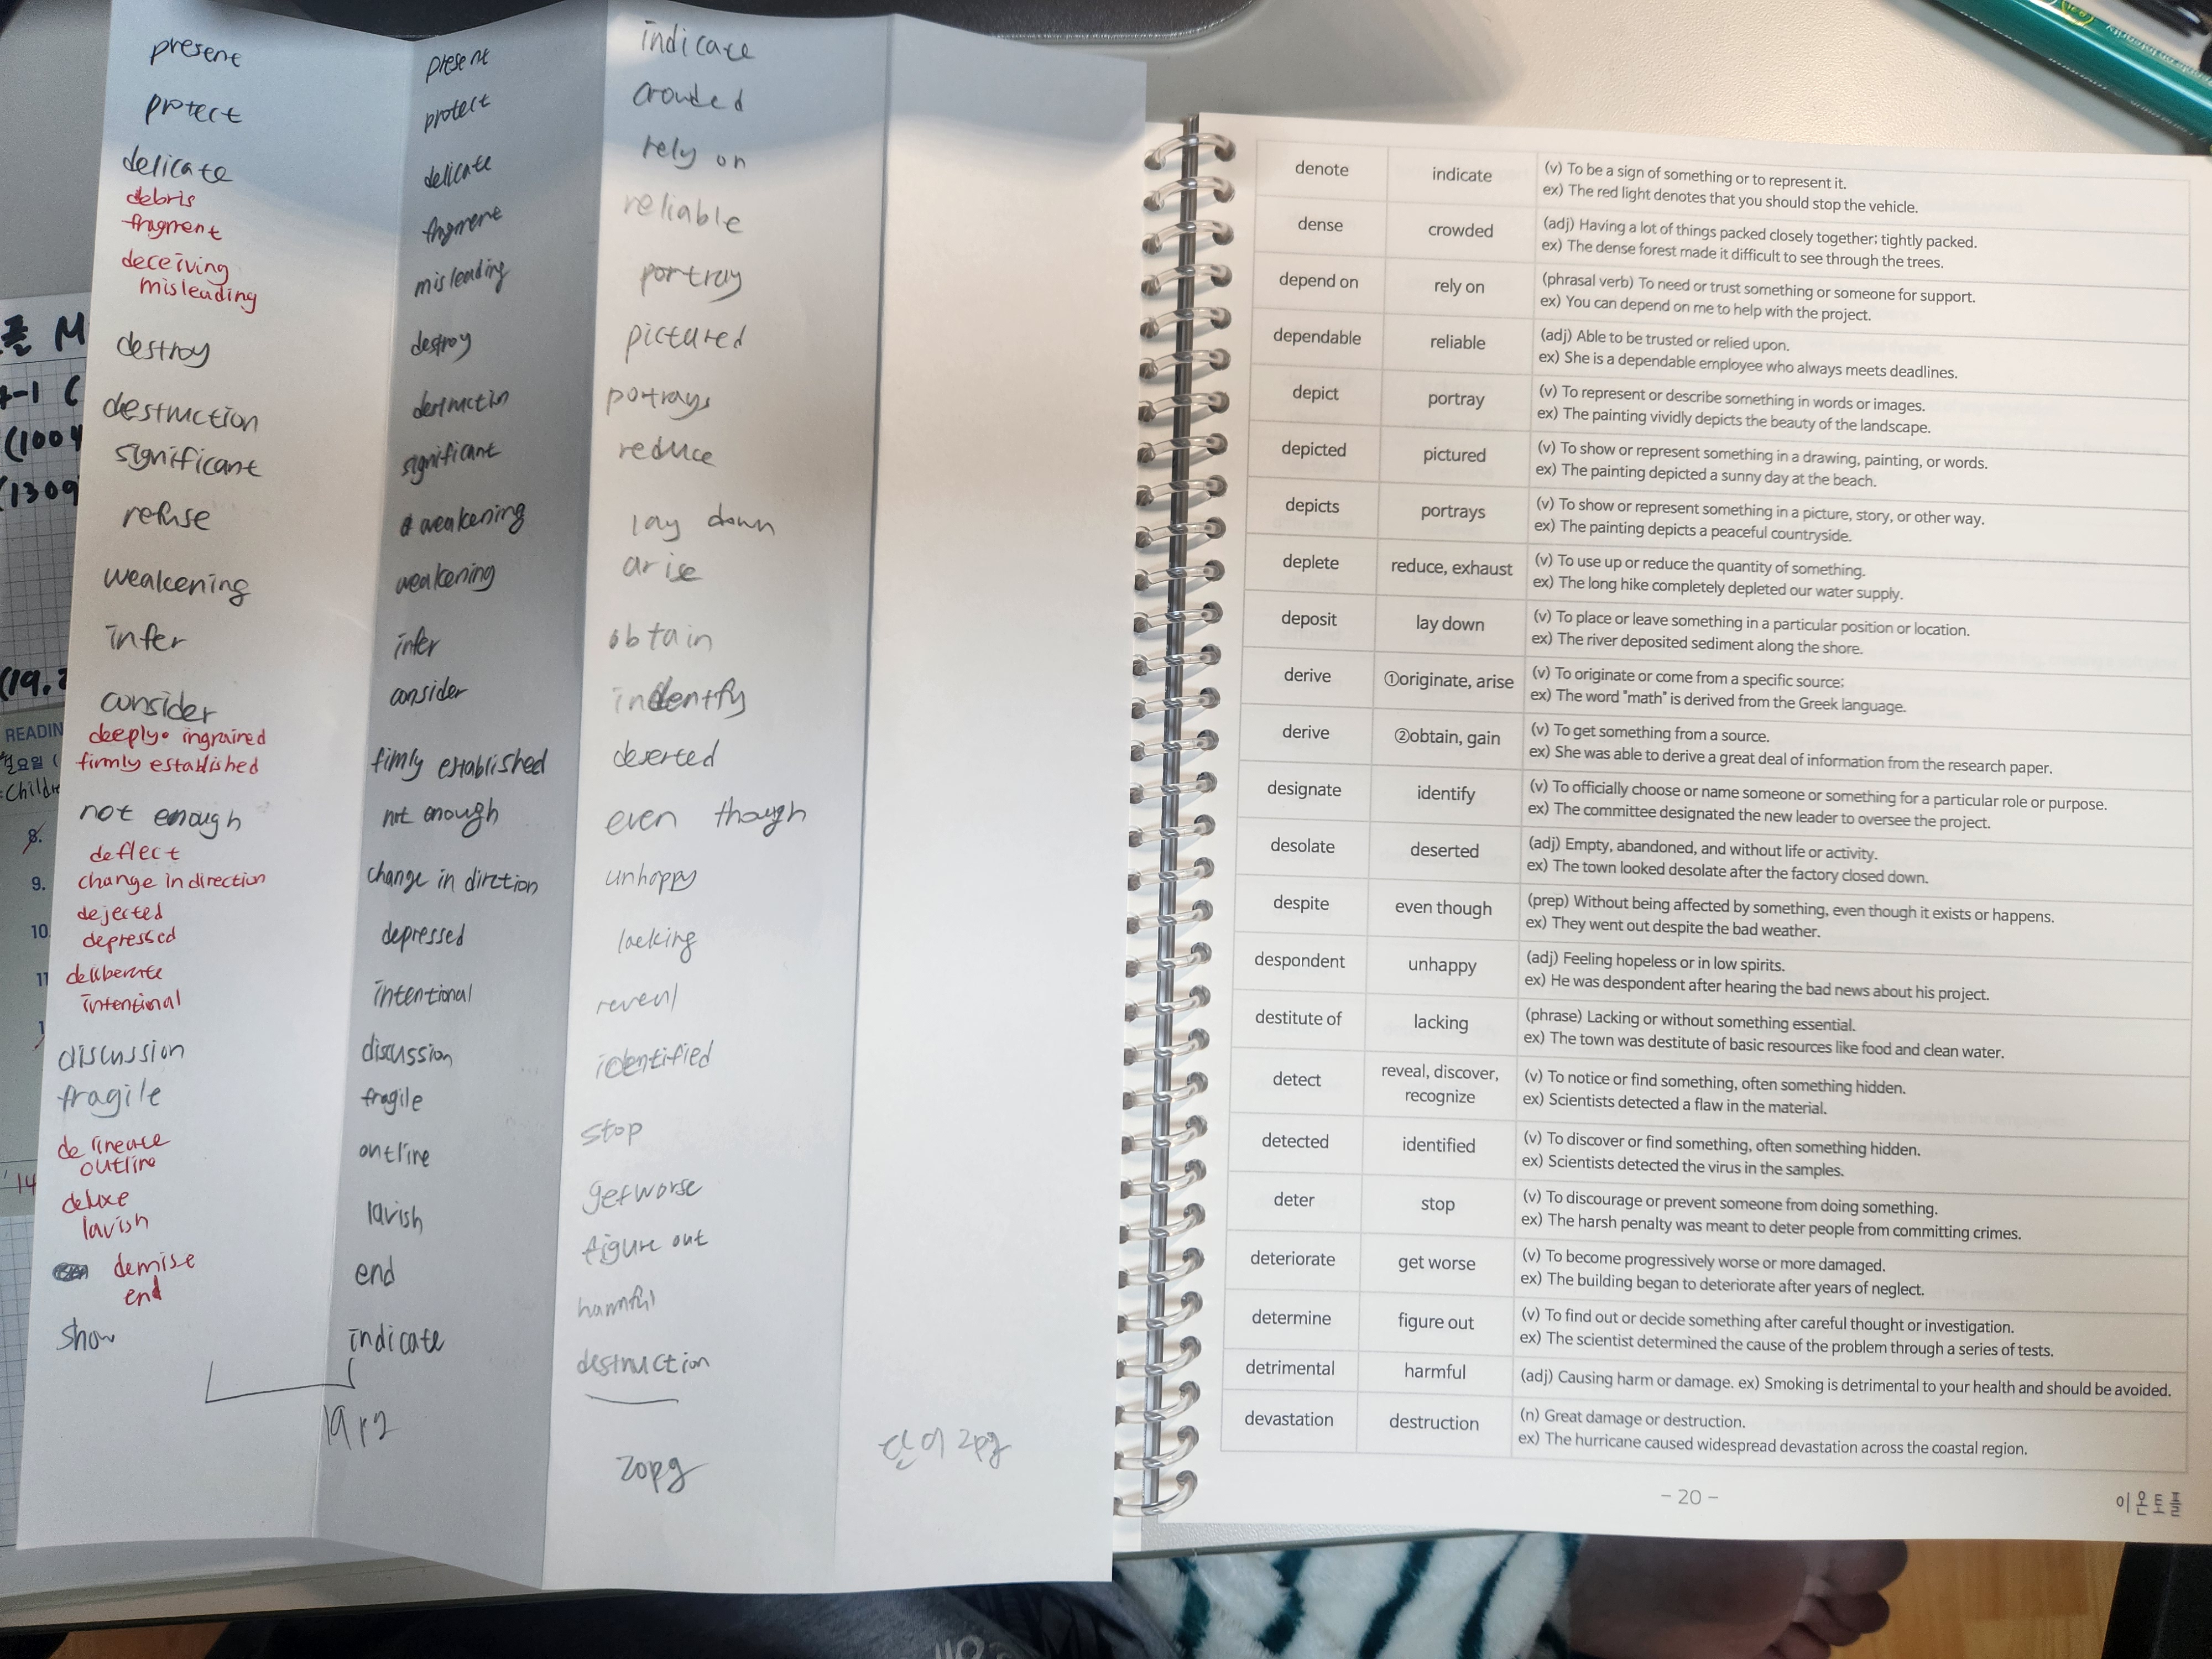 present
protect
delicate
debris
fragment
deceiving
misleading
destroy
destruction
significant
refuse
weakening
infer
consider
deeply ingrained
firmly established
not enough
deflect
change in direction
dejected
depressed
deliberate
intentional
discussion
fragile
delineate
outline
deluxe
lavish
demise
end
show
present
protect
delicate
fragment
misleading
destroy
destructin
significant
weakening
weakening
infer
consider
firmly established
not enough
change in dirction
depressed
intentional
discussion
fragile
outline
lavish
end
indicate
19pg
indicate
crowded
rely on
reliable
portray
pictured
portrays
reduce
lay down
arise
obtain
indentfy
deserted
even though
unhappy
lacking
reveal
identified
stop
get worse
figure out
harmful
destruction
20pg
단어 2pg
READIN
8.
9.
10
11
14
denote indicate (v) To be a sign of something or to represent it.
ex) The red light denotes that you should stop the vehicle.
dense crowded (adj) Having a lot of things packed closely together; tightly packed.
ex) The dense forest made it difficult to see through the trees.
depend on rely on (phrasal verb) To need or trust something or someone for support.
ex) You can depend on me to help with the project.
dependable reliable (adj) Able to be trusted or relied upon.
ex) She is a dependable employee who always meets deadlines.
depict portray (v) To represent or describe something in words or images.
ex) The painting vividly depicts the beauty of the landscape.
depicted pictured (v) To show or represent something in a drawing, painting, or words.
ex) The painting depicted a sunny day at the beach.
depicts portrays (v) To show or represent something in a picture, story, or other way.
ex) The painting depicts a peaceful countryside.
deplete reduce, exhaust (v) To use up or reduce the quantity of something.
ex) The long hike completely depleted our water supply.
deposit lay down (v) To place or leave something in a particular position or location.
ex) The river deposited sediment along the shore.
derive ①originate, arise (v) To originate or come from a specific source;
ex) The word "math" is derived from the Greek language.
derive ②obtain, gain (v) To get something from a source.
ex) She was able to derive a great deal of information from the research paper.
designate identify (v) To officially choose or name someone or something for a particular role or purpose.
ex) The committee designated the new leader to oversee the project.
desolate deserted (adj) Empty, abandoned, and without life or activity.
ex) The town looked desolate after the factory closed down.
despite even though (prep) Without being affected by something, even though it exists or happens.
ex) They went out despite the bad weather.
despondent unhappy (adj) Feeling hopeless or in low spirits.
ex) He was despondent after hearing the bad news about his project.
destitute of lacking (phrase) Lacking or without something essential.
ex) The town was destitute of basic resources like food and clean water.
detect reveal, discover, recognize (v) To notice or find something, often something hidden.
ex) Scientists detected a flaw in the material.
detected identified (v) To discover or find something, often something hidden.
ex) Scientists detected the virus in the samples.
deter stop (v) To discourage or prevent someone from doing something.
ex) The harsh penalty was meant to deter people from committing crimes.
deteriorate get worse (v) To become progressively worse or more damaged.
ex) The building began to deteriorate after years of neglect.
determine figure out (v) To find out or decide something after careful thought or investigation.
ex) The scientist determined the cause of the problem through a series of tests.
detrimental harmful (adj) Causing harm or damage. ex) Smoking is detrimental to your health and should be avoided.
devastation destruction (n) Great damage or destruction.
ex) The hurricane caused widespread devastation across the coastal region.
- 20 -
이온토플